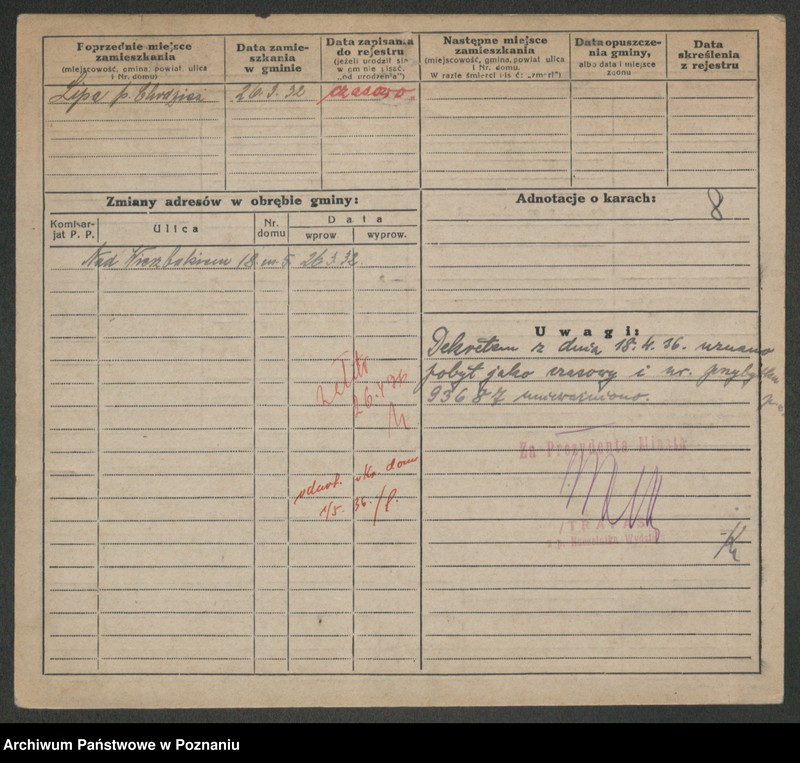 Poprzednie miejsce zamieszkania
(miejscowość, gmina, powiat, ulica i Nr. domu)
Data zamieszkania w gminie
Data zapisania do rejestru
(jeżeli urodził się w gminie pisać: „od urodzenia")
Następne miejsce zamieszkania
(miejscowość, gmina, powiat, ulica i Nr. domu.
W razie śmierci pisać: „zmarł")
Data opuszczenia gminy,
albo data i miejsce zgonu
Data skreślenia z rejestru
Lipa p. 26.3.32 czasowo.
Zmiany adresów w obrębie gminy:
Adnotacje o karach: 8
Komisarjat P. P.
Ulica
Nr. domu
Data
wprow.
wyprow.
Nad Wierzbakiem 18 m. 5 26.3.32.
Uwagi:
Dekretem z dnia 18.4.36. uznano
pobyt jako czasowy i nr.
93687 unieważniono.
26.4.36
domu
1/5. 36.
Za Prezydenta Miasta